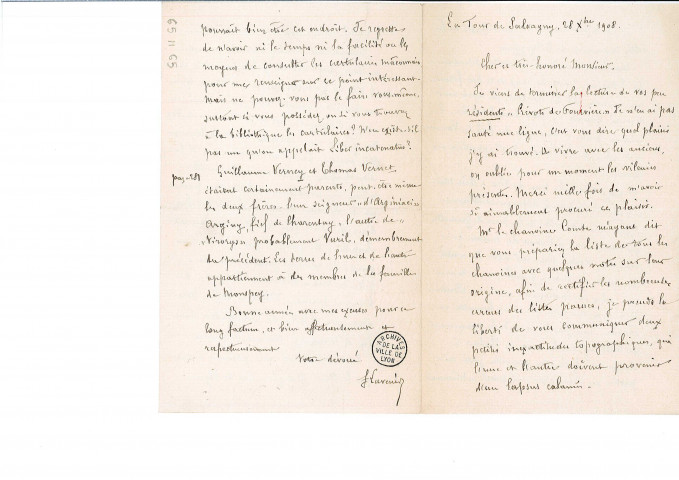 La Tour de Salvagny, 28 Xbre 1908.
Cher et très honoré Monsieur,
Je viens de terminer la lecture de vos
"Pivots de Fourvière". Je n'en ai pas
sauté une ligne, c'est vous dire quel plaisir
j'y ai trouvé. À vivre avec les anciens,
on oublie pour un moment les vilains
présents. Merci mille fois de m'avoir
si aimablement procuré ce plaisir.
Mr le chanoine Comte m'ayant dit
que vous prépariez la liste de tous les
chanoines avec quelques notes sur leur
origine, afin de rectifier les nombreuses
erreurs des listes parues, je prends la
liberté de vous communiquer deux
petites inexactitudes topographiques, qui
l'une et l'autre doivent provenir
d'un lapsus calami.
pourrait bien être cet endroit. Je regrette
de n'avoir ni le temps ni la facilité ou les
moyens de consulter les cartulaires mâconnais
pour me renseigner sur ce point intéressant.
Mais ne pouvez-vous pas le faire vous-même,
surtout si vous possédez ou si vous trouvez
à la bibliothèque les cartulaires? N'en existe-t-il
pas un qu'on appelait Liber incatenatus?
pag. 289
Guillaume Verney et Thomas Vernet
étaient certainement parents, peut-être même
les deux frères. L'un seigneur d'Arginiacum
Arginy, fief de Charentay, l'autre de
probablement Vuril, démembrement
du précédent. Les terres de l'une et de l'autre
appartiennent à des membres de la famille
de Monspey.
Bonne année avec mes excuses pour ce
long factum, et bien affectueusement et
respectueusement
Votre dévoué
ARCHIVES
DE LA
VILLE DE
LYON
65 11 55